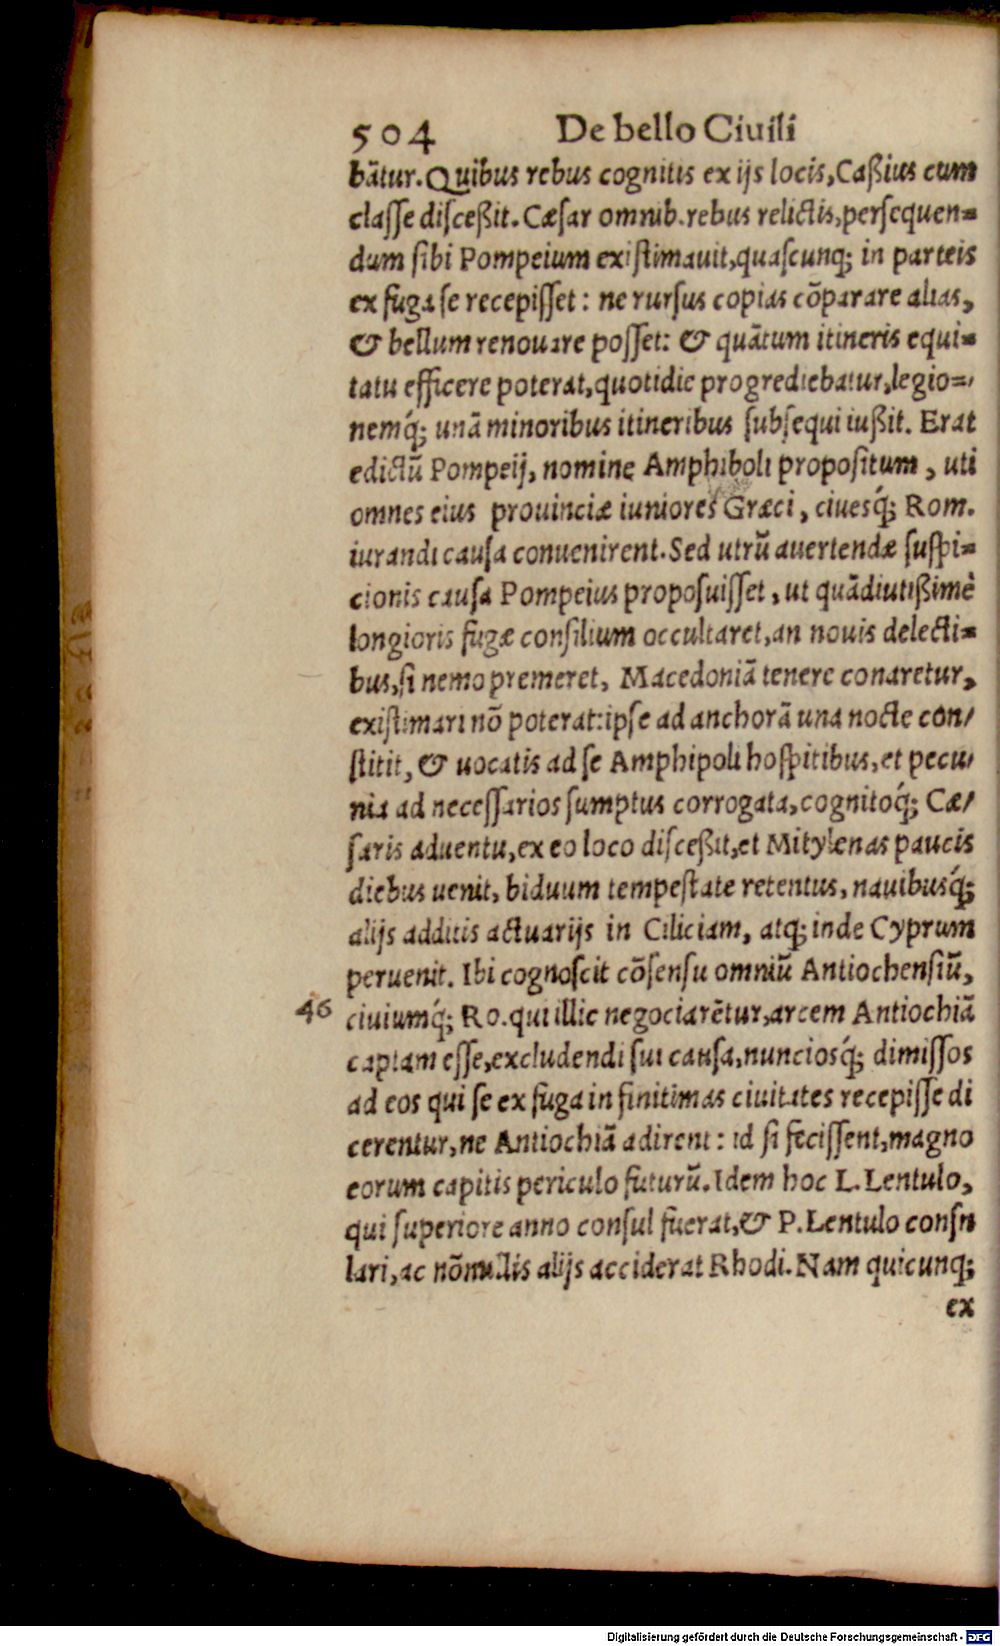 504 De bello Ciuili
bātur. Quibus rebus cognitis ex ijs locis, Caßius cum
claſſe diſceßit. Cæſar omnib. rebus relictis, perſequen=
dum ſibi Pompeium exiſtimauit, quaſcunq; in parteis
ex fuga ſe recepiſſet: ne rurſus copias cōparare alias,
& bellum renouare poſſet: & quātum itineris equi=
tatu efficere poterat, quotidie progrediebatur, legio=
nemq́; unā minoribus itineribus ſubſequi iußit. Erat
edictū Pompeij, nomine Amphiboli propoſitum, uti
omnes eius prouinciæ iuniores Græci, ciuesq́; Rom.
iurandi cauſa conuenirent. Sed utrū auertendæ ſuſpi=
cionis cauſa Pompeius propoſuiſſet, ut quādiutißimè
longioris fugæ conſilium occultaret, an nouis delecti=
bus, ſi nemo premeret, Macedoniā tenere conaretur,
exiſtimari nō poterat: ipſe ad anchorā una nocte con/
ſtitit, & uocatis ad ſe Amphipoli hoſpitibus, et pecu/
nia ad neceſſarios ſumptus corrogata, cognitoq́; Cæ/
ſaris aduentu, ex eo loco diſceßit, et Mitylenas paucis
diebus uenit, biduum tempeſtate retentus, nauibusq́;
alijs additis actuarijs in Ciliciam, atq; inde Cyprum
peruenit. Ibi cognoſcit cōſenſu omniū Antiochenſiū,
46 ciuiumq́; Ro. qui illic negociarētur, arcem Antiochiā
captam eſſe, excludendi ſui cauſa, nunciosq́; dimiſſos
ad eos qui ſe ex fuga in finitimas ciuitates recepiſſe di
cerentur, ne Antiochiā adirent: id ſi feciſſent, magno
eorum capitis periculo futurū. Idem hoc L. Lentulo,
qui ſuperiore anno conſul fuerat, & P. Lentulo conſu
lari, ac nōnullis alijs acciderat Rhodi. Nam quicunq;
ex
Digitalisierung gefördert durch die Deutsche Forschungsgemeinschaft - DFG